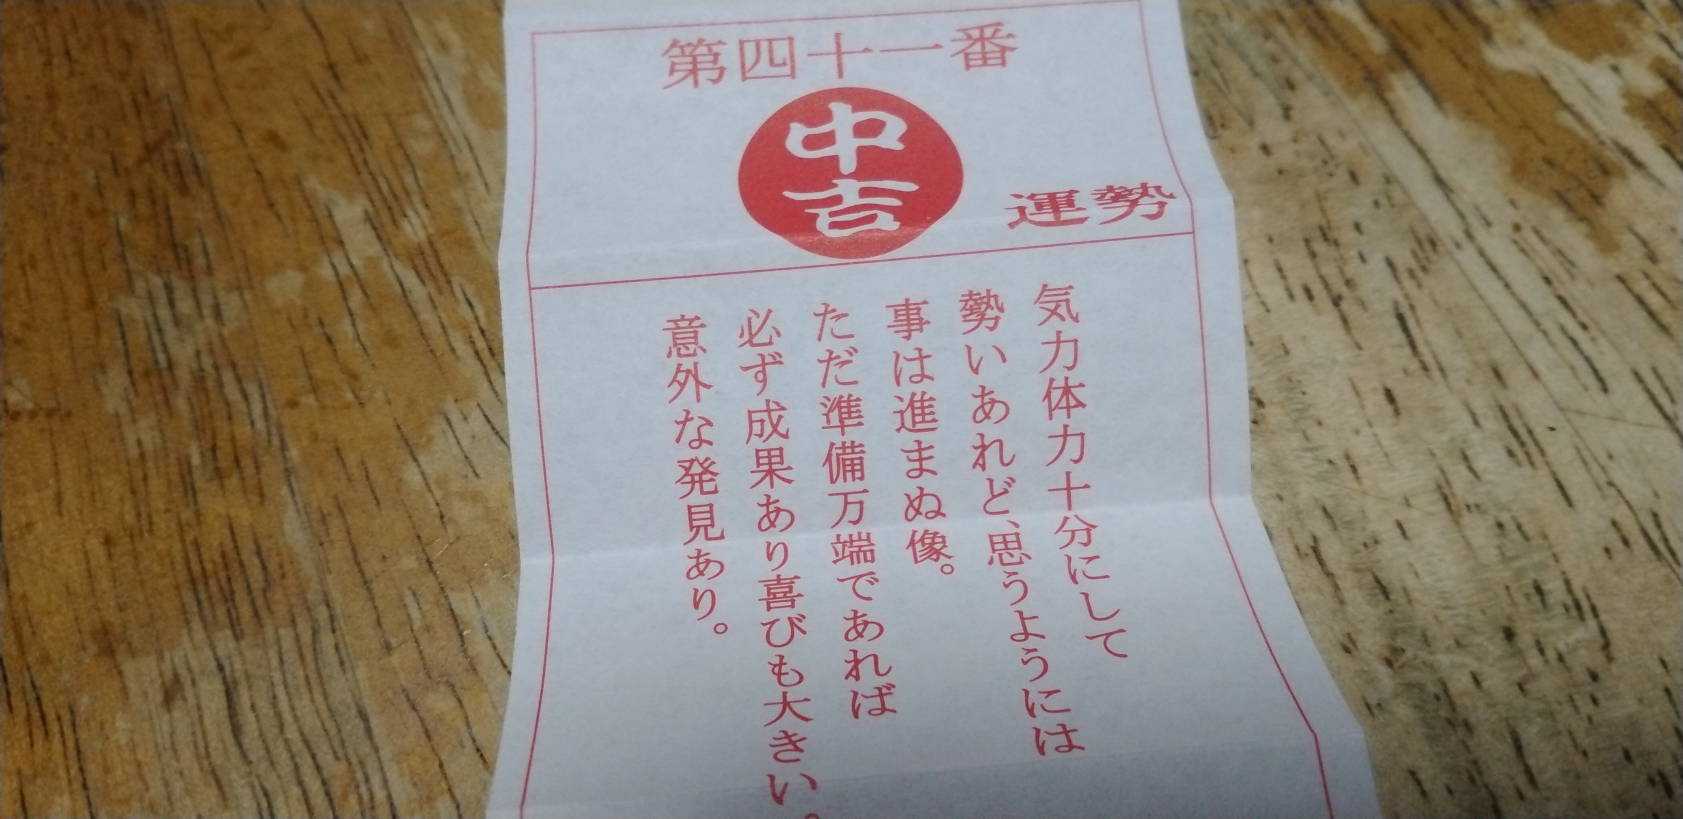 第四十一番
中吉
運勢
気力体力十分にして
勢いあれど、思うようには
事は進まぬ像。
ただ準備万端であれば
必ず成果あり喜びも大きい。
意外な発見あり。